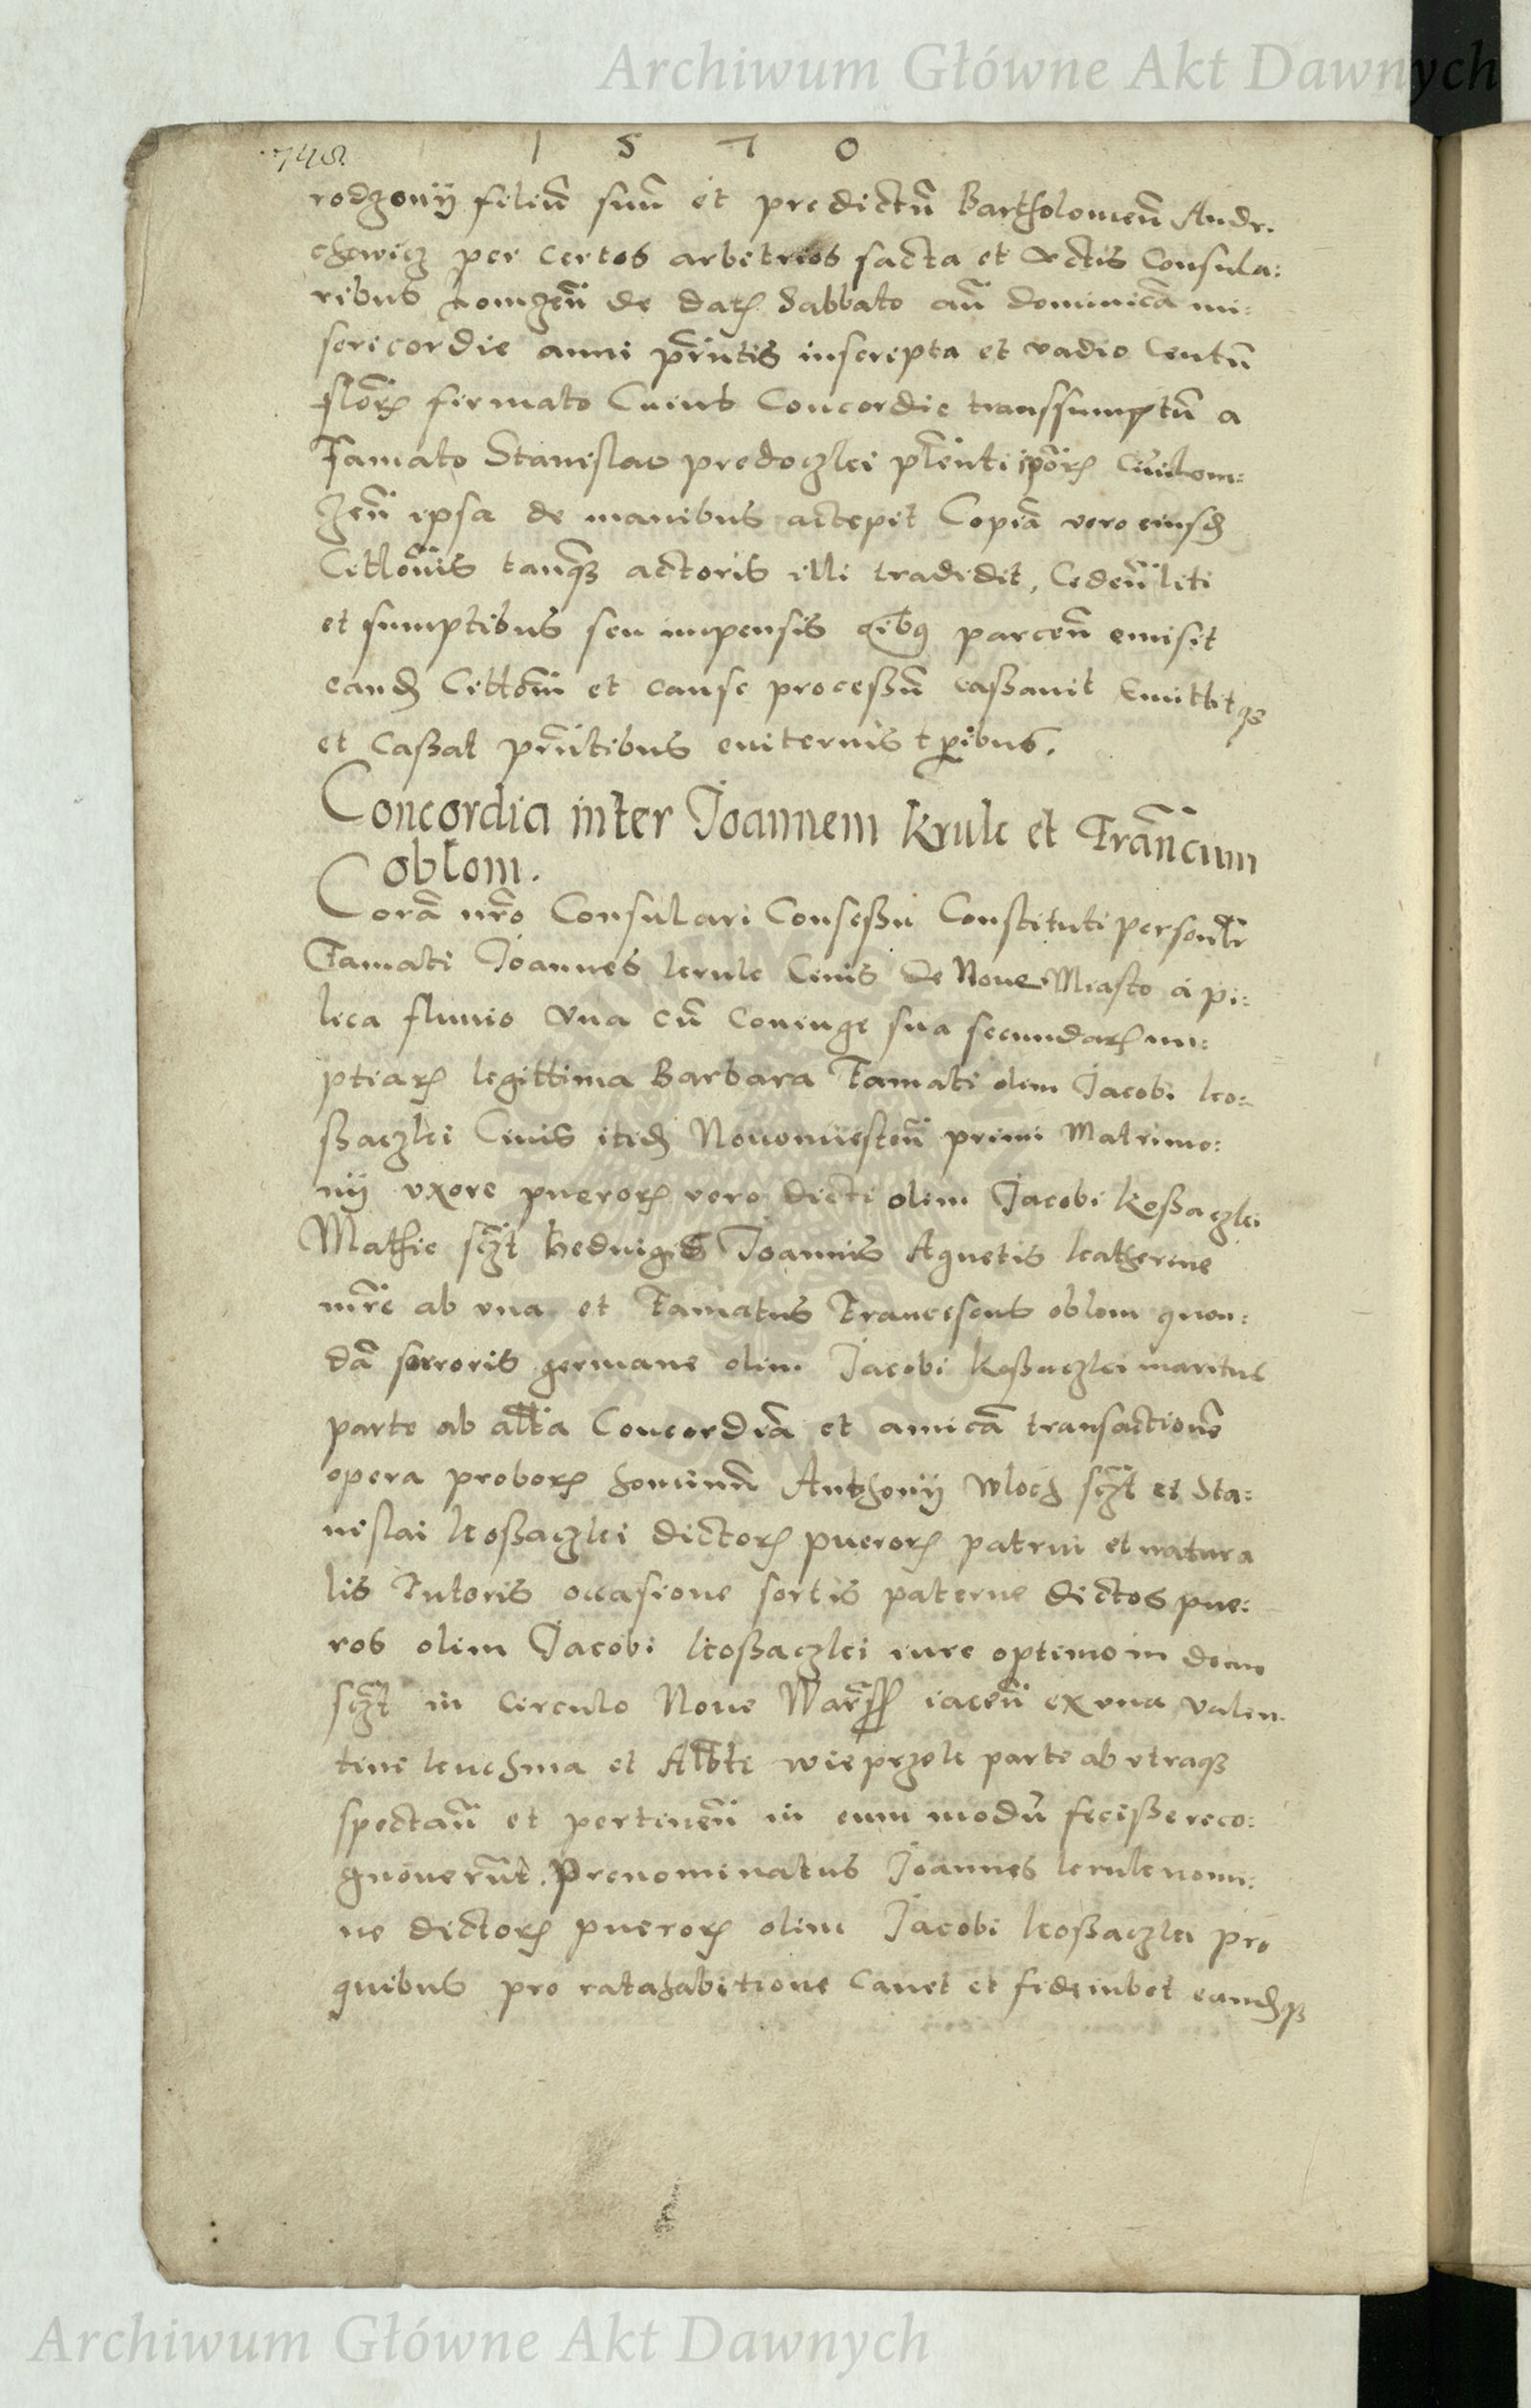 Archiwum Główne Akt Dawnych
748
1 5 7 0
rodzonÿ filiū suū et predictū Bartholomeū Andr.
chowicz per certos arbitros facta et Actis Consula:
ribus Lomzen̄ de dat Sabbato an̄ dominicā mi:
sericordie anni pn̄tis inscripta et vadio Centū
flor firmato Cuius Concordie transsumptū a
Famato Stanislao predoczki plenti ipor̄
zen̄ ipsa de manibus accepit Copiā vero eiusd
Citton̄is tanq actoris illi tradidit, Ceden̄ liti
et sumptibus seu impensis qibq parcen̄ emisit
eand Citton̄ et cause processū cassavit Emittitq
et Cassat pn̄tibus eviternis tp̄ribus.
Concordia inter Joannem Krulc et Fran̄cum
oblom.
Corā nr̄o Consulari Consessu Constituti personlr̄
Famati Joannes krulc Civis de Nove Miasto a pi:
lica fluvio Vna cū Coniuge sua secundar nu:
ptiar legittima Barbara Famati olim Jacobi ko:
ssaczki Civis itid Novomiesten̄ primi Matrimo:
nÿ vxore pueror vero dicti olim Jacobi kossaczki
Mathie sczt hedvigis Joannis Agnetis katherine
mr̄e ab vna et Famatus Franciscus oblom quon:
dā sorroris germane olim Jacobi kossaczki maritus
parte ab alta Concordiā et amicā transactionē
opera probor hominū Anthonÿ wloch sczt et Sta:
nislai kossaczki dictor pueror patrui et natura
lis Tutoris occasione sortis paterne dictos pue:
ros olim Jacobi kossaczki iure optimo in domo
sczt in circulo Nove Warss iacen̄ ex vna valen:
tini kuchma et Albti wieprzek parte ab vtraq
spectan̄ et pertinen̄ in eum modū fecisse reco:
gnoverūt. Prenominatus Joannes krulc nomi:
ne dictor pueror olim Jacobi kossaczki pro
quibus pro ratahabitione cavet et fideiubet eundq
Archiwum Główne Akt Dawnych